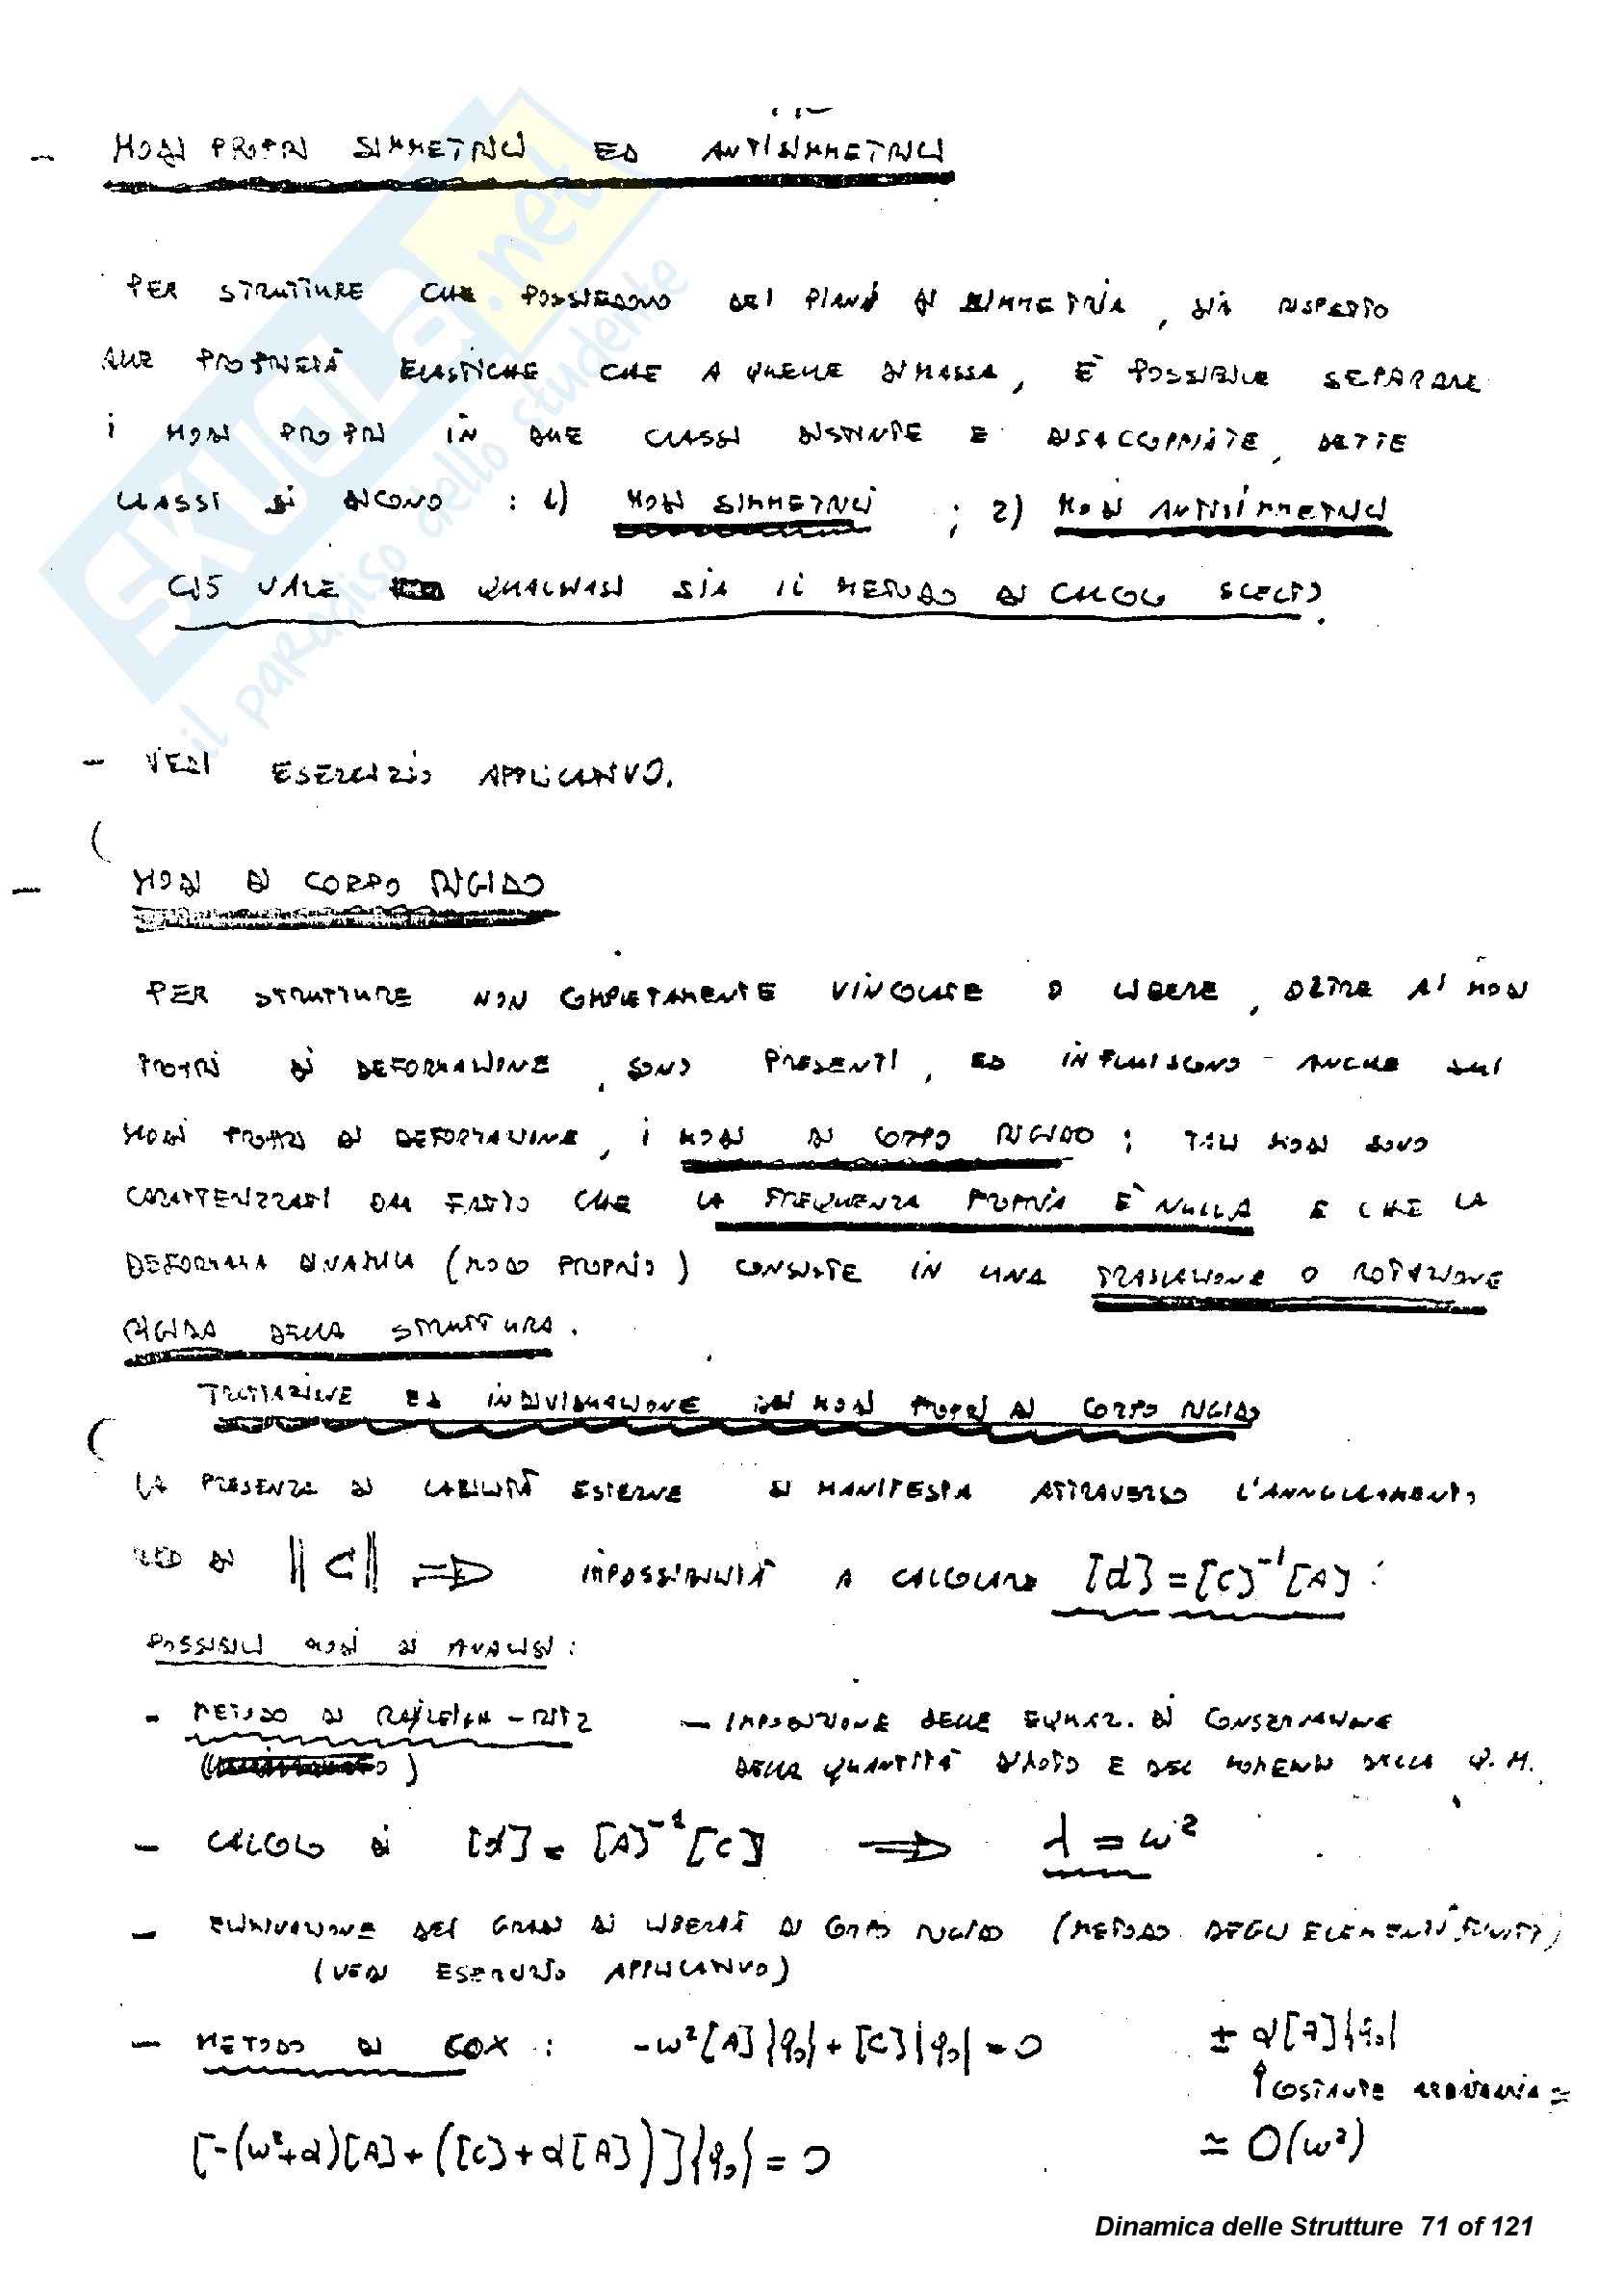 - MODI PROPRI SIMMETRICI ED ANTISIMMETRICI
PER STRUTTURE CHE POSSIEDONO DEI PIANI DI SIMMETRIA, SIA RISPETTO
ALLE PROPRIETÀ ELASTICHE CHE A QUELLE DI MASSA, È POSSIBILE SEPARARE
I MODI PROPRI IN DUE CLASSI DISTINTE E DISACCOPPIATE, DETTE
CLASSI SI DICONO : 1) MODI SIMMETRICI ; 2) MODI ANTISIMMETRICI
CIÒ VALE QUALSIASI SIA IL METODO DI CALCOLO SCELTO.
- VEDI ESERCIZIO APPLICATIVO.
- MODI DI CORPO RIGIDO
PER STRUTTURE NON COMPLETAMENTE VINCOLATE O LIBERE, OLTRE AI MODI
PROPRI DI DEFORMAZIONE, SONO PRESENTI, ED INFLUISCONO ANCHE SUI
MODI PROPRI DI DEFORMAZIONE, I MODI DI CORPO RIGIDO ; TALI MODI SONO
CARATTERIZZATI DAL FATTO CHE LA FREQUENZA PROPRIA È NULLA E CHE LA
DEFORMATA DINAMICA (MODO PROPRIO) CONSISTE IN UNA TRASLAZIONE O ROTAZIONE
RIGIDA DELLA STRUTTURA.
TRATTAZIONE ED INDIVIDUAZIONE DEI MODI PROPRI DI CORPO RIGIDO
LA PRESENZA DI LABILITÀ ESTERNE SI MANIFESTA ATTRAVERSO L'ANNULLAMENTO
DI ||C|| ⇒ IMPOSSIBILITÀ A CALCOLARE [d] = [C]⁻¹[A] :
POSSIBILI MODI DI ANALISI :
- METODO DI RAYLEIGH-RITZ - IMPOSIZIONE DELLE EQUAZ. DI CONSERVAZIONE
DELLA QUANTITÀ DI MOTO E DEL MOMENTO DELLA Q.M.
- CALCOLO DI [d] = [A]⁻¹[C] ⇒ λ = ω²
- ELIMINAZIONE DEI GRADI DI LIBERTÀ DI CORPO RIGIDO (METODO DEGLI ELEMENTI FINITI)
(VEDI ESERCIZIO APPLICATIVO)
- METODO DI COX : -ω²[A]{q₀}+[C]{q₀}=0 ± α[A]{q₀}
↑ COSTANTE ARBITRARIA ≃
[-(ω²+α)[A]+([C]+α[A])]{q₀}=0 ≃ O(ω²)
Dinamica delle Strutture 71 of 121
SKUOLA.net
il paradiso dello studente